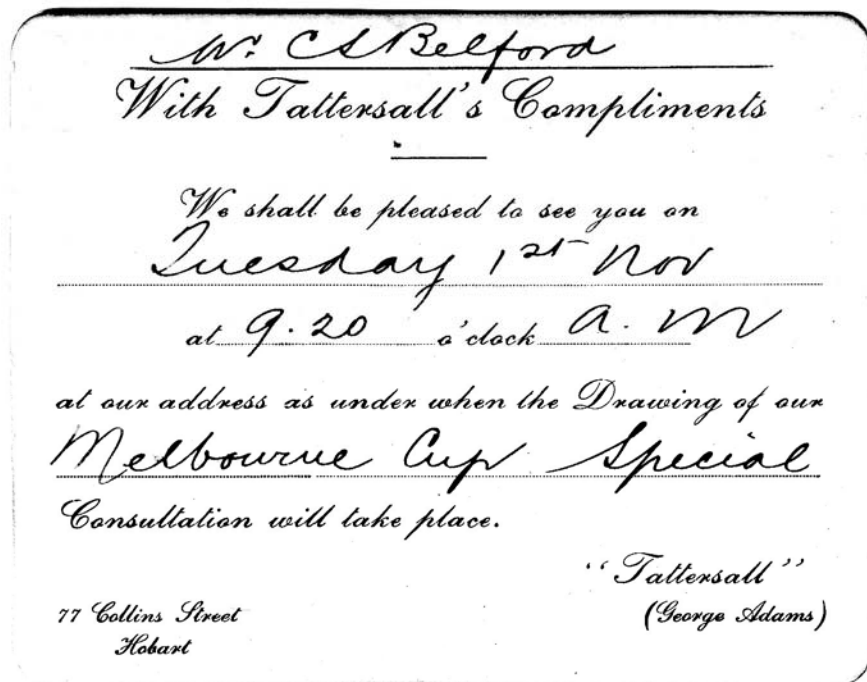 Mr. C S Belford
With Tattersall's Compliments
We shall be pleased to see you on
Tuesday 1st Nov
at 9.20 o'clock A.M
at our address as under when the Drawing of our
Melbourne Cup Special
Consultation will take place.
"Tattersall"
77 Collins Street (George Adams)
Hobart